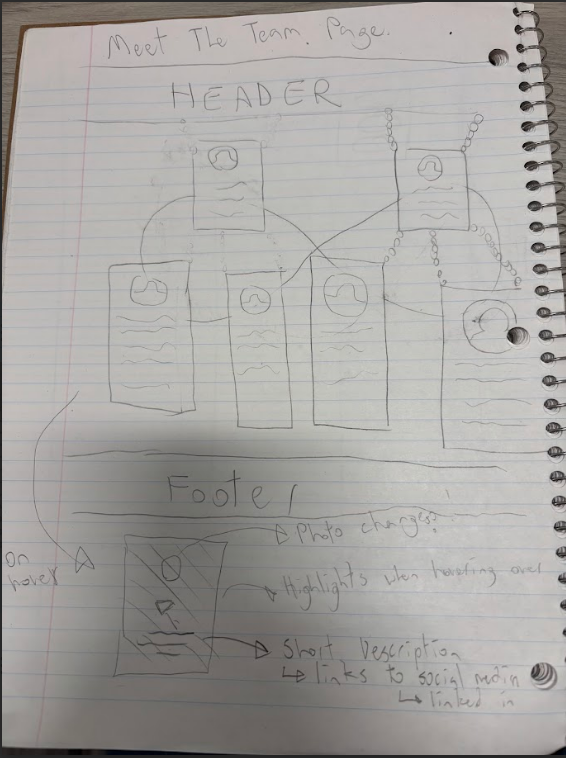 Meet The Team. Page.
HEADER
Footer
Photo changes?
On hover
Highlights when hovering over
Short Description
links to social media
linked in